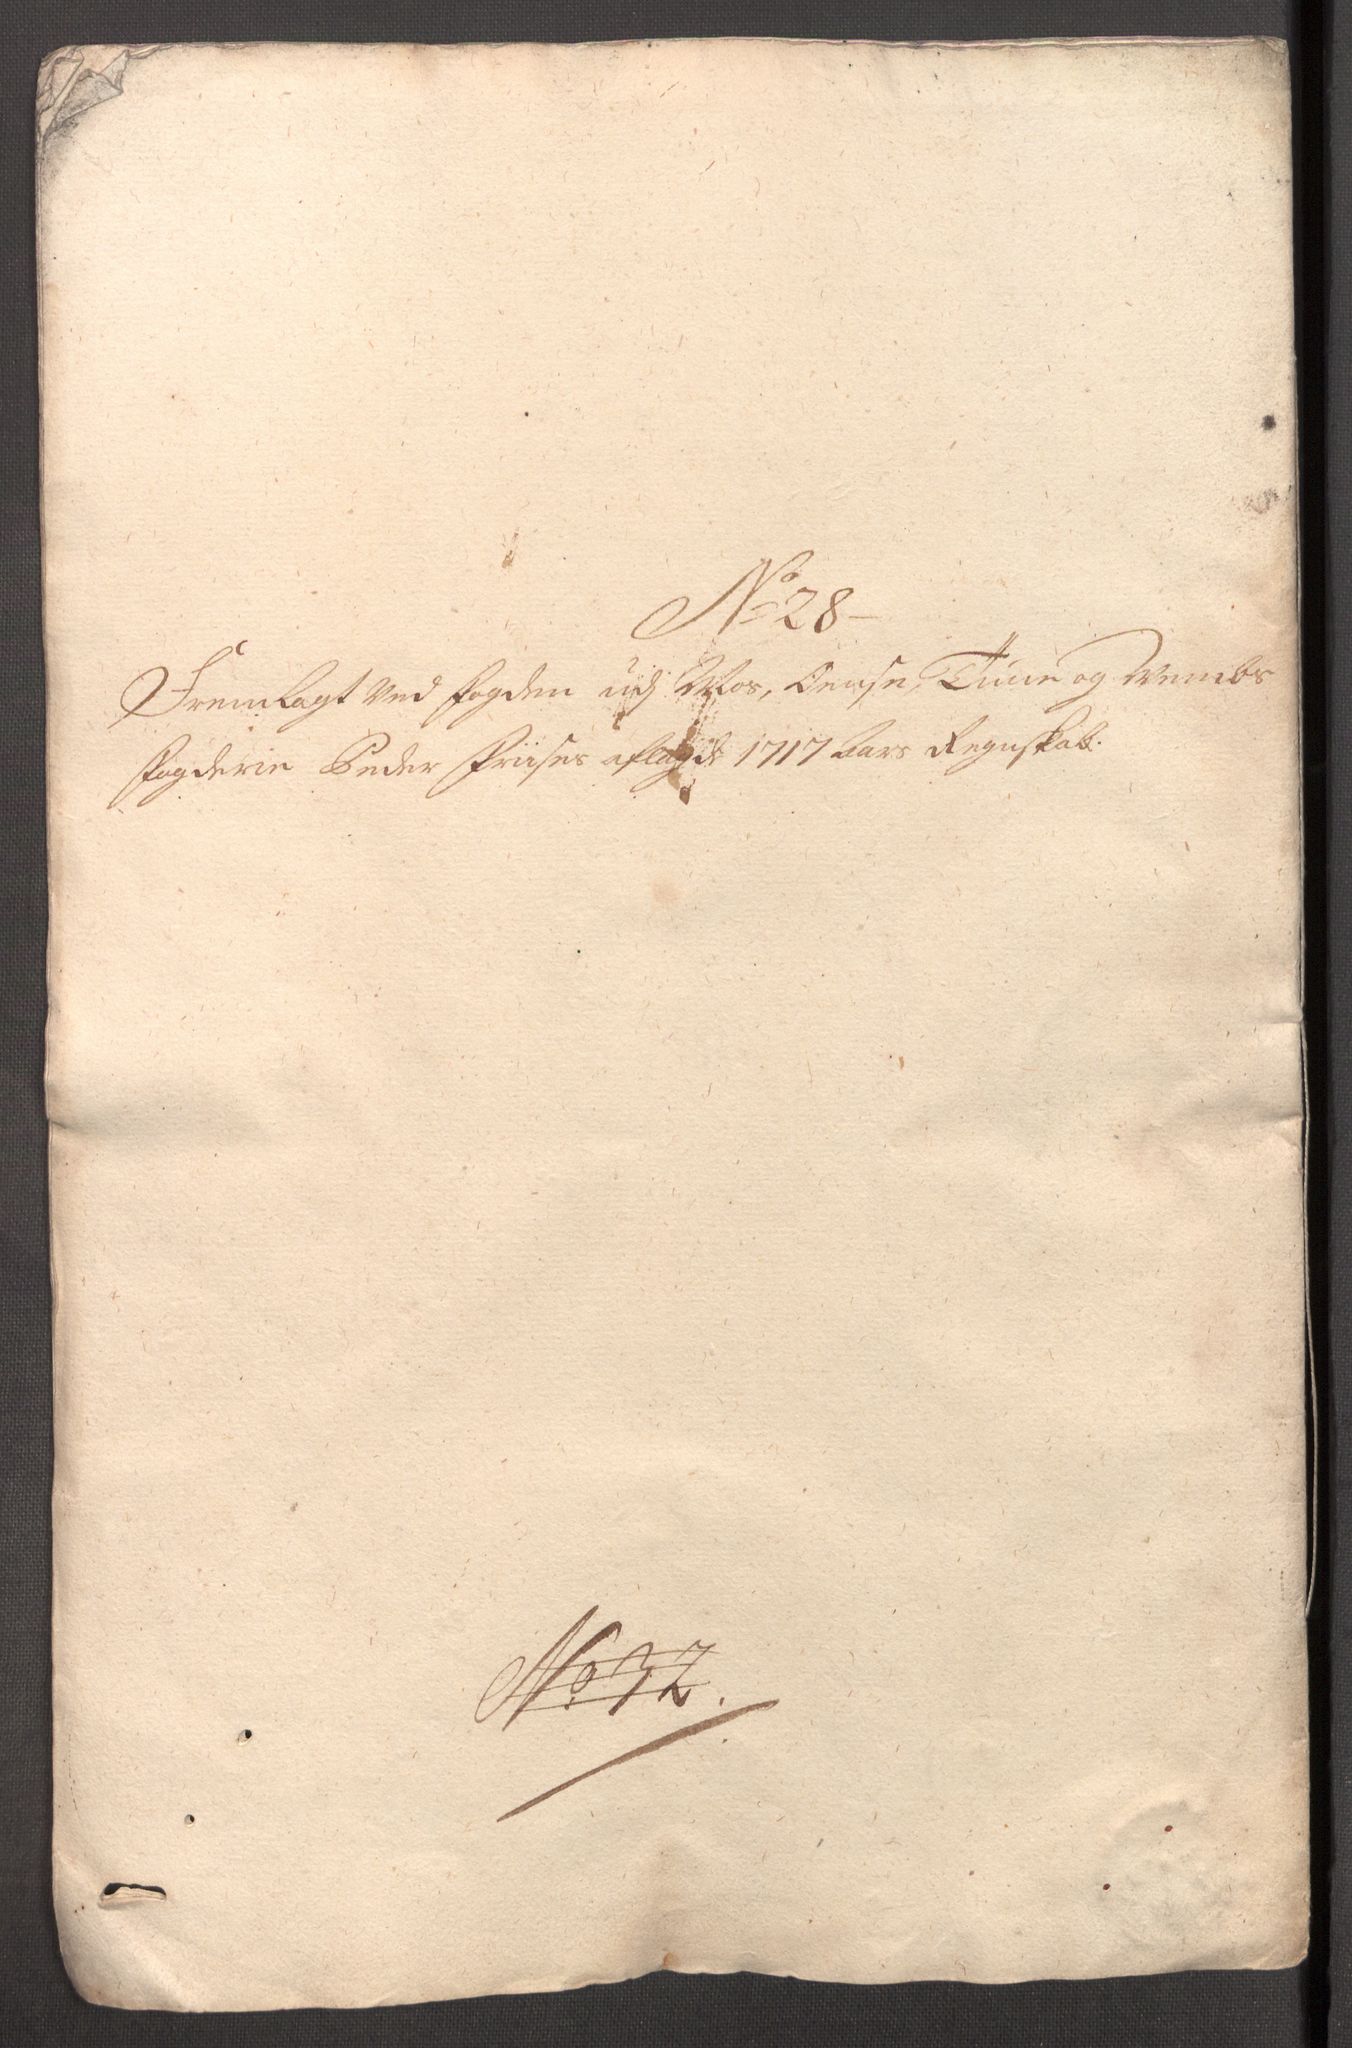 No 28
Fremlagt Ved fogden udj Mos, Oensøe, Tuune og Wembs
fogderie Peder Friises aflagde 1717 Aars Regnskab.
No 32.